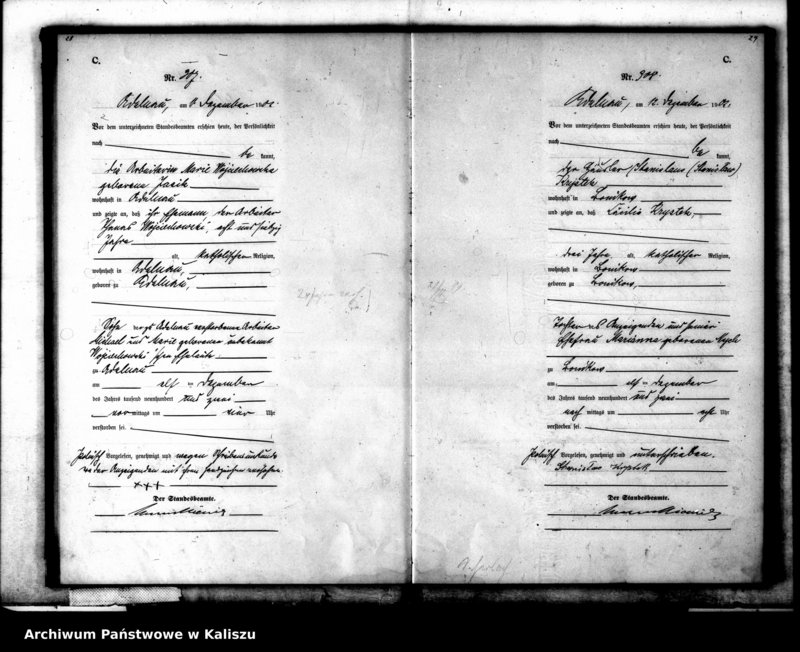 C.
Nr. 207.
Adelnau, am 6. Dezember 1902.
Vor dem unterzeichneten Standesbeamten erschien heute, der Persönlichkeit
nach
kannt,
die Arbeiterin Marie Wojciechowska
geborene
wohnhaft in Adelnau
und zeigte an, daß ihr Ehemann der Arbeiter
Wojciechowski, acht und siebzig
Jahre
alt, katholischer Religion,
wohnhaft in Adelnau,
geboren zu Adelnau,
Sohn verstorbenen Arbeiter
und Marie geborene unbekannt
Wojciechowski'schen Eheleute
zu Adelnau
am elf ten Dezember
des Jahres tausend neunhundert und zwei
vor mittags um vier Uhr
verstorben sei.
Vorgelesen, genehmigt und wegen Schreibensunkunde
der Anzeigenden mit ihrem Handzeichen versehen.
+++
Der Standesbeamte.
29
C.
Nr. 208.
Adelnau, am 12. Dezember 1902.
Vor dem unterzeichneten Standesbeamten erschien heute, der Persönlichkeit
nach
be kannt,
der Häusler Stanislaus (Stanislaw)
Krystek
wohnhaft in Bonikow
und zeigte an, daß Cäcilie Krystek,
drei Jahre, alt, katholischer Religion,
wohnhaft in Bonikow
geboren zu Bonikow,
Tochter des Anzeigenden und seiner
Ehefrau Marianna geborenen
zu Bonikow
am elf ten Dezember
des Jahres tausend neunhundert und zwei
nach mittags um acht Uhr
verstorben sei.
Vorgelesen, genehmigt und unterschrieben.
Stanislaw Krystek
Der Standesbeamte.
Archiwum Państwowe w Kaliszu